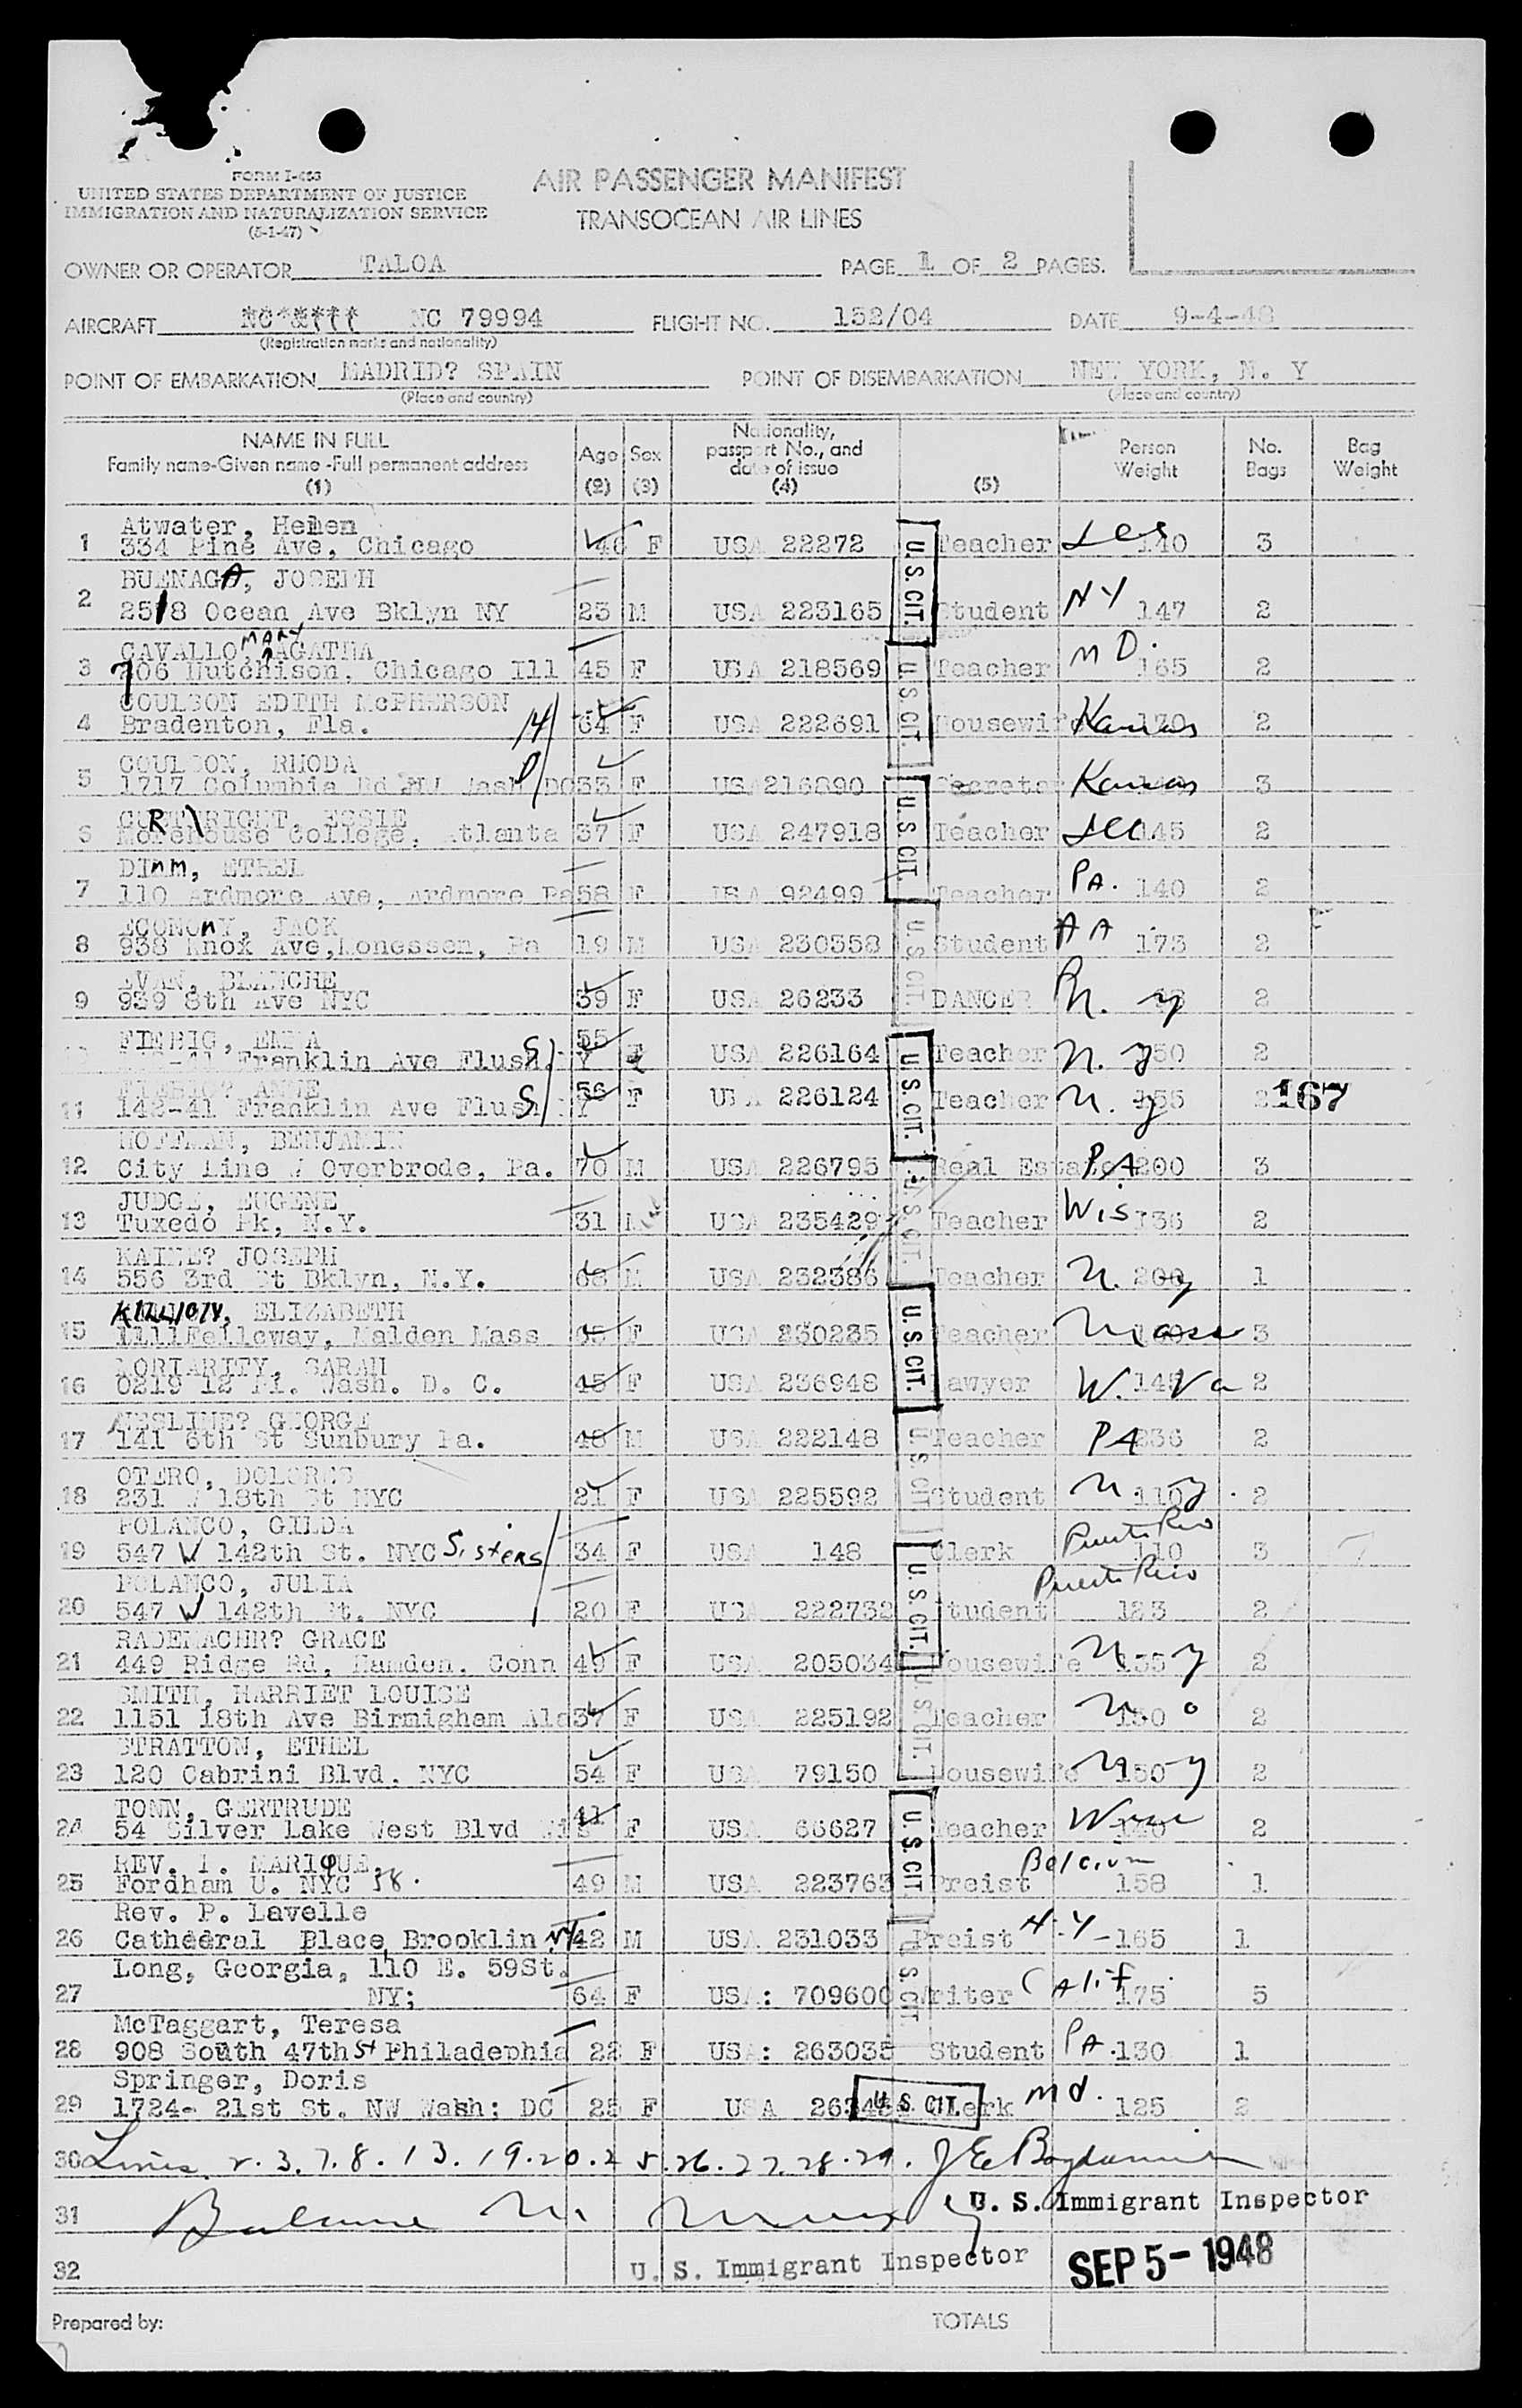 FORM I-453
UNITED STATES DEPARTMENT OF JUSTICE
IMMIGRATION AND NATURALIZATION SERVICE
(5-1-47)
AIR PASSENGER MANIFEST
TRANSOCEAN AIR LINES
OWNER OR OPERATOR TALOA PAGE 1 OF 2 PAGES.
AIRCRAFT NC 79994 FLIGHT NO. 152/04 DATE 9-4-48
(Registration marks and nationality)
POINT OF EMBARKATION MADRID? SPAIN POINT OF DISEMBARKATION NEW YORK, N. Y
(Place and country) (Place and country)
NAME IN FULL Age Sex Nationality, passport No., and date of issue Person Weight No. Bags Bag Weight
Family name-Given name -Full permanent address
(1) (2) (3) (4) (5)
Atwater, Helen
1 334 Pine Ave, Chicago F USA 22272 U.S. CIT. Teacher 140 3
BUENAGA, JOSEPH
2 2518 Ocean Ave Bklyn NY 23 M USA 223165 Student NY 147 2
CAVALLO, MARY AGATHA
3 706 Hutchison, Chicago Ill 45 F USA 218569 U.S. CIT. Teacher MD. 165 2
COULSON EDITH McPHERSON
4 Bradenton, Fla. 64 F USA 222691 Housewife Kansas 2
COULSON, RHODA
5 1717 Columbia Rd NW Wash DC 33 F USA 216890 U.S. CIT. Secretar Kansas 3
6 Morehouse College, Atlanta 37 F USA 247918 Teacher 145 2
DIMM, ETHEL
7 110 Ardmore Ave, Ardmore Pa 58 F USA 92499 Teacher PA. 140 2
ECONOMY, JACK
8 938 Knox Ave, Monessen, Pa 19 M USA 230358 U.S. CIT. Student 173 2
EVAN, BLANCHE
9 939 8th Ave NYC 39 F USA 26233 DANCER N. Y 2
FIEBIG, EMMA
Franklin Ave Flush. NY 55 F USA 226164 U.S. CIT. Teacher N. Y 150 2
FIEBIG? ANNE
11 142-41 Franklin Ave Flush NY 56 F USA 226124 Teacher N. Y 155 2 167
HOFFMAN, BENJAMIN
12 City Line & Overbrode, Pa. 70 M USA 226795 U.S. CIT. Real Estate PA. 200 3
JUDGE, EUGENE
13 Tuxedo Pk, N.Y. 31 M USA 235429 Teacher Wis 136 2
KAINE? JOSEPH
14 556 3rd St Bklyn, N.Y. 68 M USA 232386 Teacher N. Y 200 1
ELIZABETH
15 Malden Mass 65 F USA 230235 U.S. CIT. Teacher Mass 3
MORIARITY, SARAH
16 0219 12 Pl. Wash. D. C. 45 F USA 236948 Lawyer W. Va 145 2
NESLINE? GEORGE
17 141 6th St Sunbury Pa. 48 M USA 222148 U.S. CIT. Teacher PA 236 2
OTERO, DOLORES
18 231 W 18th St NYC 21 F USA 225592 Student N. Y. 110 2
POLANCO, GILDA
19 547 W 142th St. NYC Sisters 34 F USA 148 U.S. CIT. Clerk Puerto Rico 110 3
POLANCO, JULIA
20 547 W 142th St. NYC 20 F USA 222732 Student Puerto Rico 123 2
RADEMACHR? GRACE
21 449 Ridge Rd, Hamden, Conn 49 F USA 205034 Housewife N. Y 135 2
SMITH, HARRIET LOUISE
22 1151 18th Ave Birmighem Ala 37 F USA 225192 U.S. CIT. Teacher 2
STRATTON, ETHEL
23 120 Cabrini Blvd. NYC 54 F USA 79150 Housewife N. Y 150 2
TONN, GERTRUDE
24 54 Silver Lake West Blvd Wis 41 F USA 66627 U.S. CIT. Teacher 2
REV. MARIQUE,
25 Fordham U. NYC 58. 49 M USA 223763 Preist Belgium 158 1
Rev. P. Lavelle
26 Cathedral Place, Brooklin NY 42 M USA 231033 U.S. CIT Preist N.Y- 165 1
Long, Georgia, 110 E. 59St.
27 NY; 64 F USA: 709600 Writer Calif 175 5
McTaggart, Teresa
28 908 South 47th St Philadephia 22 F USA: 263035 Student PA. 130 1
Springer, Doris
29 1724- 21st St. NW Wash: DC 25 F USA U.S. CIT. Clerk Md. 125 2
30 Lines 2. 3. 7. 8. 13. 19. 20. 25. 26. 27. 28. 29.
31 U. S. Immigrant Inspector
32 U. S. Immigrant Inspector SEP 5- 1948
Prepared by: TOTALS